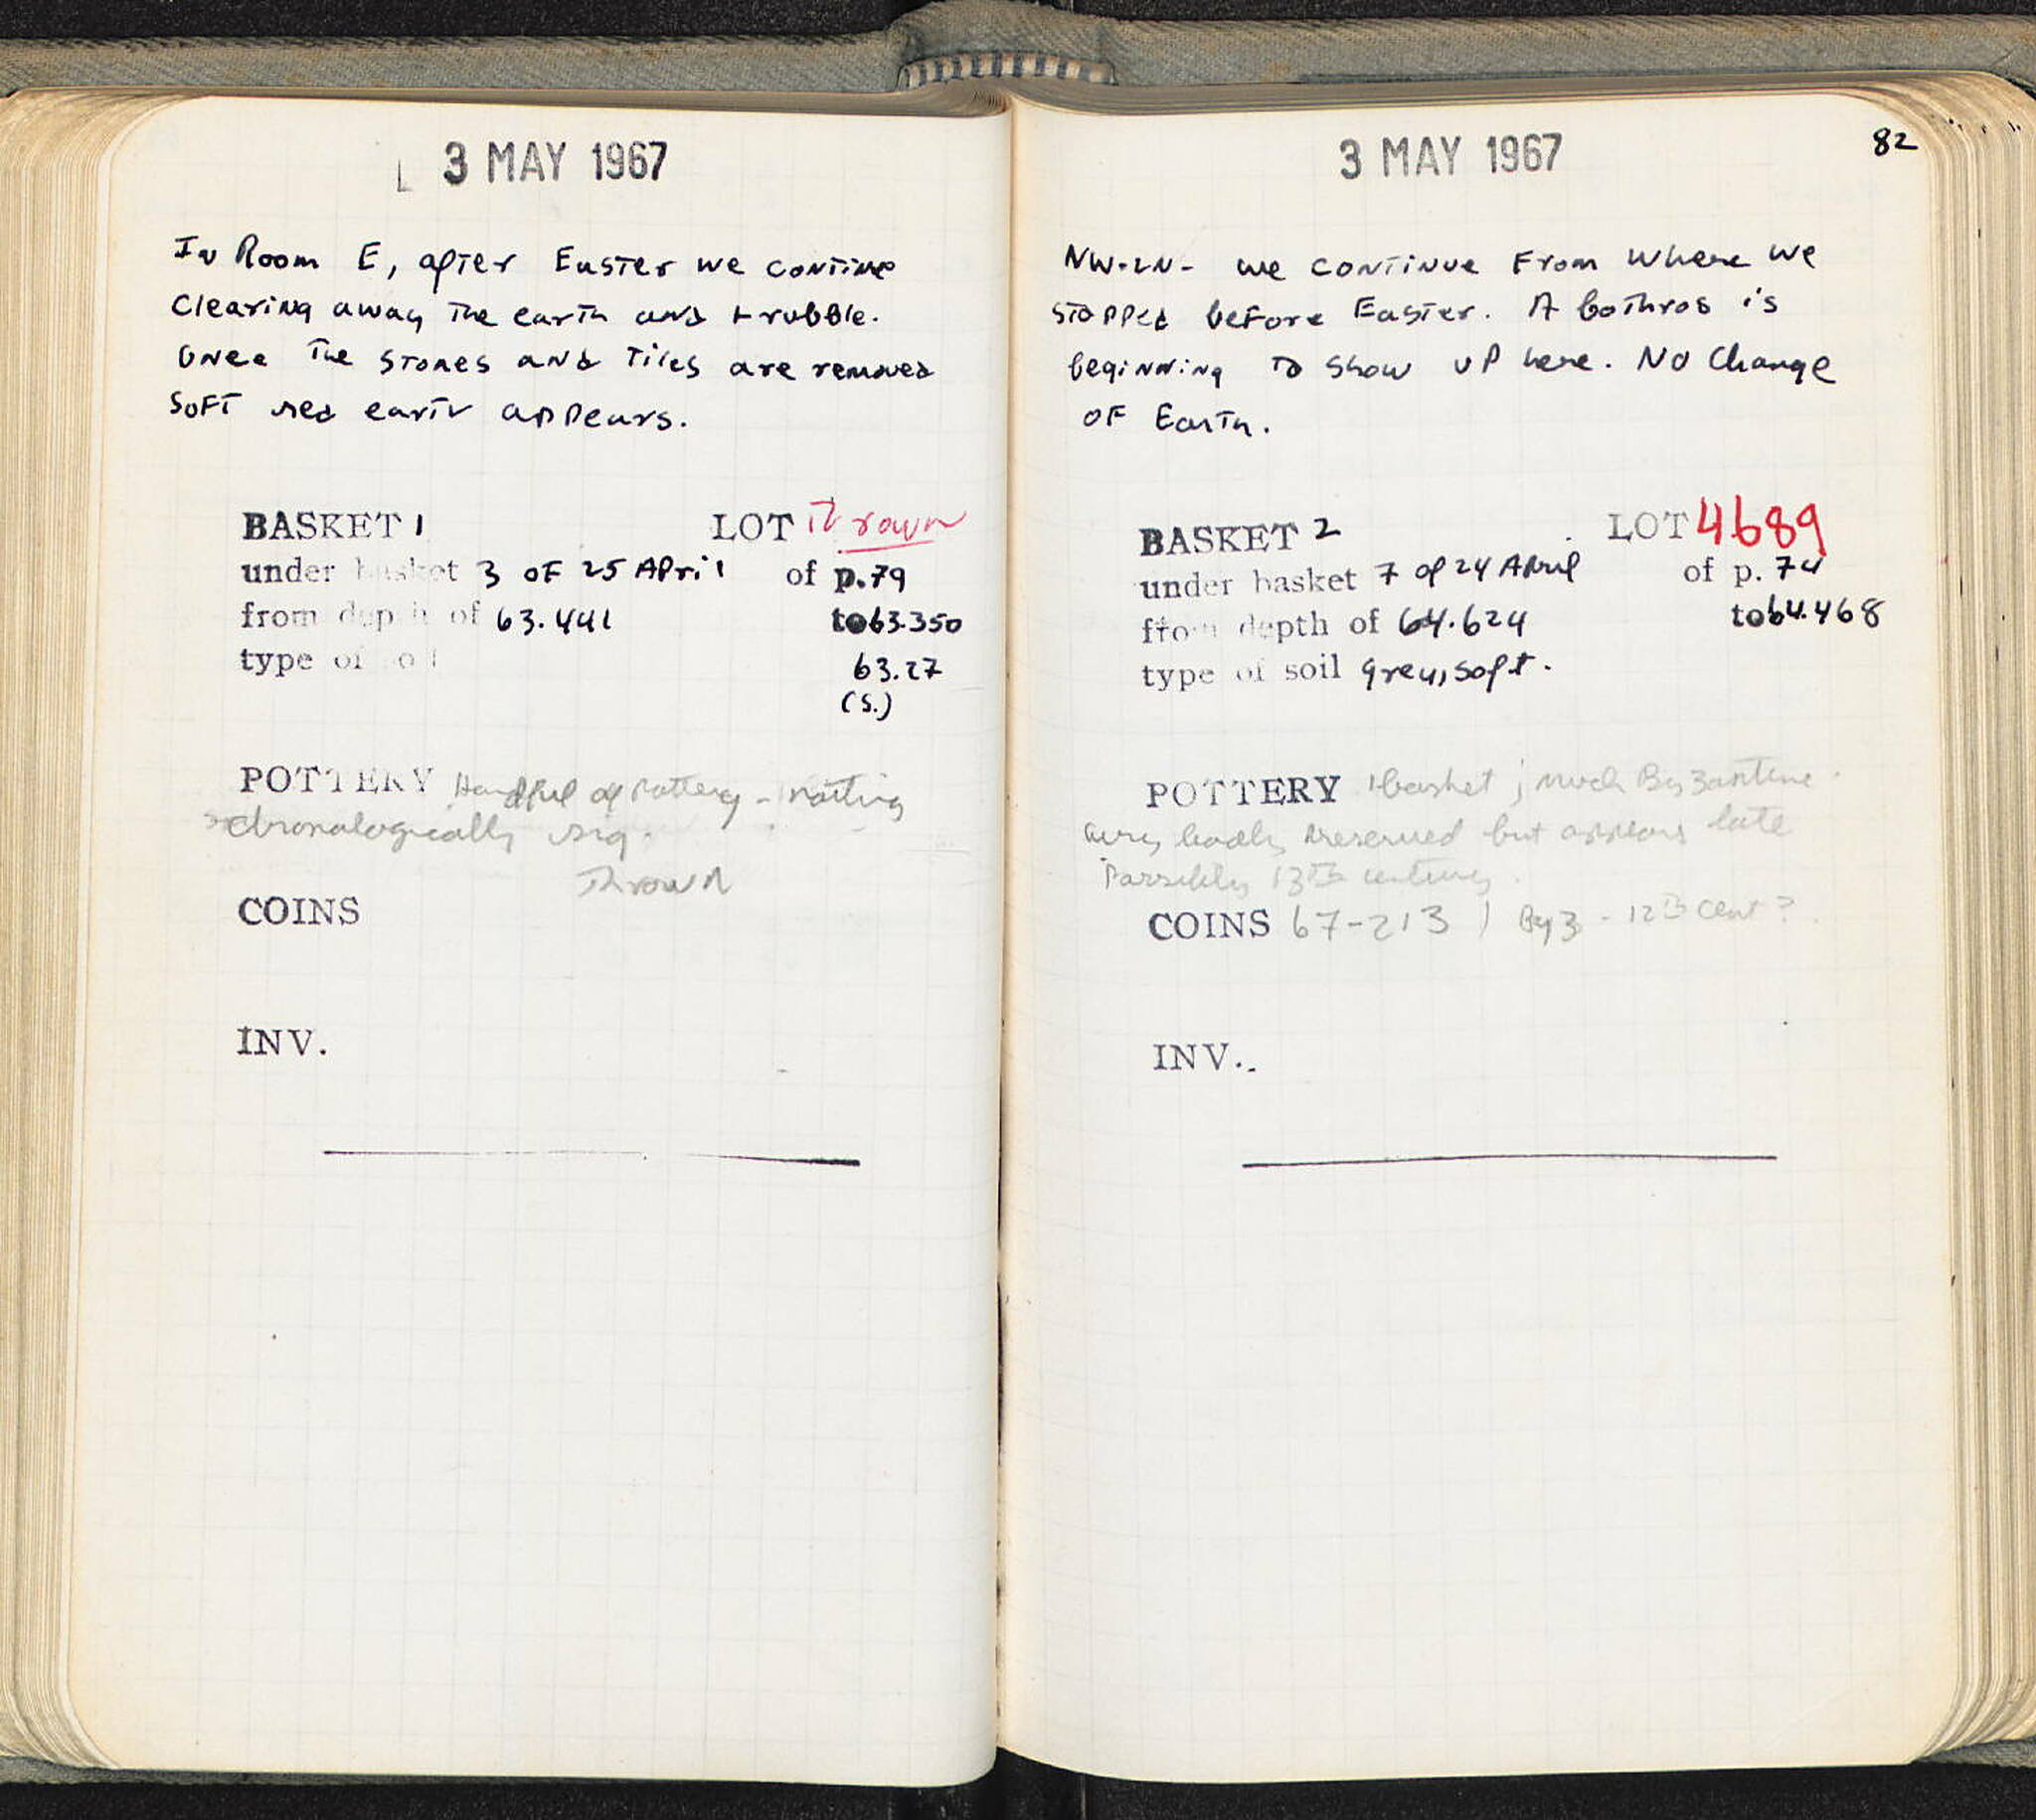 3 MAY 1967
In Room E, after Easter we continue
clearing away the earth and rubble.
Once the stones and tiles are removed
soft red earth appears.
BASKET 1 LOT thrown
under basket 3 of 25 April of p. 79
from depth of 63.441 to 63.350
type of soil 63.27
(S.)
POTTERY Handful of pottery - nothing
chronologically sig.
Thrown
COINS
INV.
82
3 MAY 1967
we continue from where we
stopped before Easter. A bothros is
beginning to show up here. No change
of Earth.
BASKET 2 LOT 4689
under basket 7 of 24 April of p. 74
from depth of 64.624 to 64.468
type of soil grey, soft.
POTTERY 1 basket; much Byzantine
very badly preserved but appears late
Possibly 13th century.
COINS 67-213 1 Byz - 12th cent?
INV.